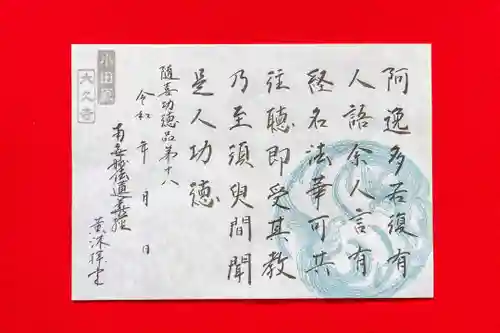 阿逸多若復有
人語余人言有
経名法華可共
往聴即受其教
乃至須臾間聞
是人功徳
随喜功徳品第十八
令和 年 月 日
南無妙法蓮華経
小田原
大久寺